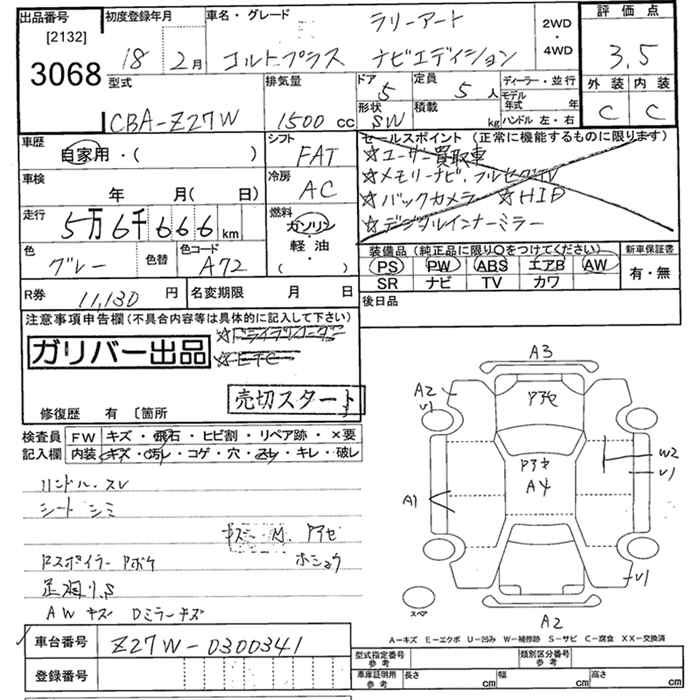 出品番号 初度登録年月 車名・グレード ラリーアート 2WD・4WD 評価点
[2132]
3068 18年 2月 コルトプラス ナビエディション 3.5
型式 排気量 ドア 5 定員 5人 ディーラー・並行 外装 内装
CBA-Z27W 1500cc 形状 SW 積載 kg モデル年式 年 ハンドル 左・右 C C
車歴 自家用・( ) シフト FAT セールスポイント (正常に機能するものに限ります)
☆ユーザー買取車
車検 年 月( 日) 冷房 AC ☆メモリーナビ、フルセグTV
☆バックカメラ ☆HID
走行 5万6千666km 燃料 ガソリン 軽油 ・( ) ☆デジタルインナーミラー
色 グレー 色替 色コード A72 装備品 (純正品に限り○をつけてください) 新車保証書
PS PW ABS エアB AW 有・無
SR ナビ TV カワ
R券 11,130円 名変期限 月 日 後日品
注意事項申告欄 (不具合内容等は具体的に記入して下さい)
ガリバー出品
☆ETC
売切スタート
修復歴 有 〔箇所
検査員 FW キズ・飛石・ヒビ割・リペア跡・×要
記入欄 内装 キズ・汚レ・コゲ・穴・スレ・キレ・破レ
ハンドル・スレ
シート シミ
キズ M. アセ
Rスポイラー Pボケ
足廻り.S
AW キズ Dミラーキズ
A3
A2
V1
アセ
アセ
A4
W2
V1
A1
V1
スペア
A2
A-キズ E-エクボ U-凹み W-補修跡 S-サビ C-腐食 XX-交換済
車台番号 Z27W-0300341
登録番号
型式指定番号 参考 類別区分番号 参考
車庫証明用 参考 長さ cm 幅 cm 高さ cm